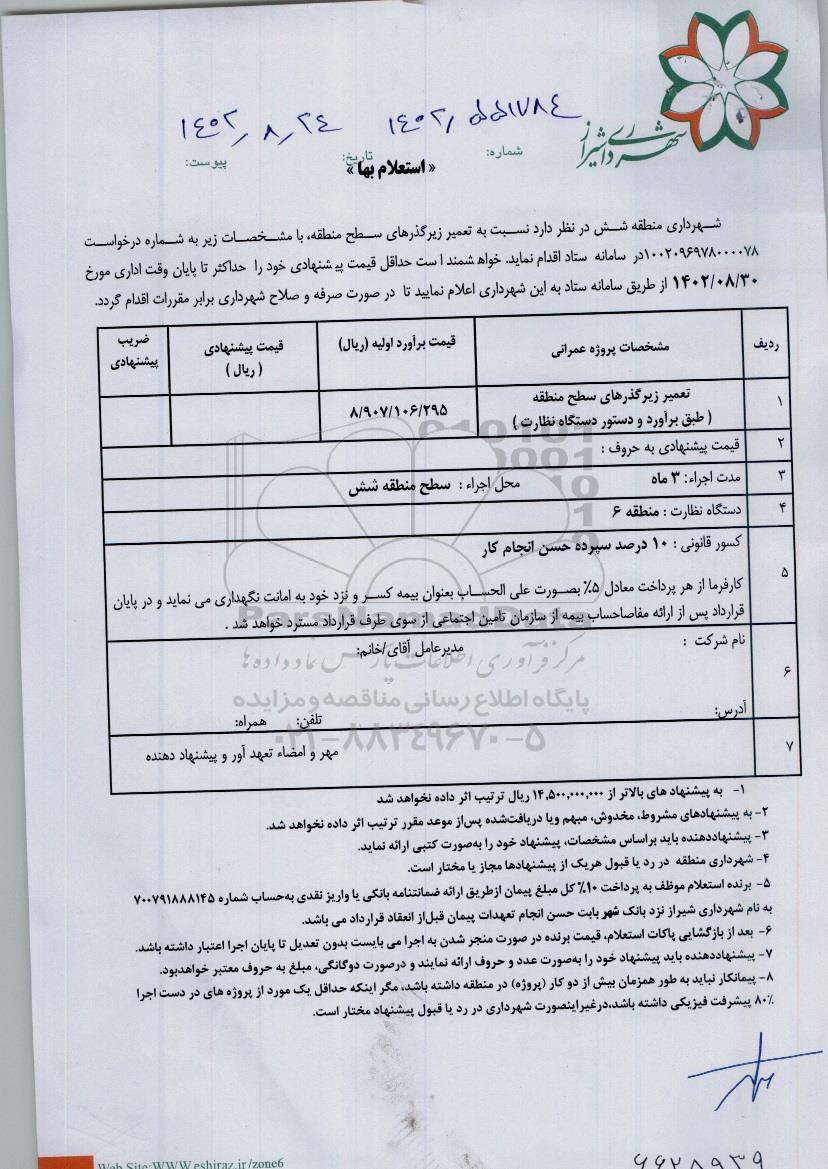 شهرداری شیراز
۱۴۰۲٫ ۵۵۱۷۸۴
۱۴۰۲٫ ۸٫ ۲۴
شماره:
تاریخ:
پیوست:
« استعلام بها »
شهرداری منطقه شش در نظر دارد نسبت به تعمیر زیرگذرهای سطح منطقه، با مشخصات زیر به شماره درخواست
۱۰۰۲۰۹۶۹۷۸۰۰۰۰۷۸در سامانه ستاد اقدام نماید. خواهشمند است حداقل قیمت پیشنهادی خود را حداکثر تا پایان وقت اداری مورخ
۱۴۰۲/۰۸/۳۰ از طریق سامانه ستاد به این شهرداری اعلام نمایید تا در صورت صرفه و صلاح شهرداری برابر مقررات اقدام گردد.
ردیف
مشخصات پروژه عمرانی
قیمت برآورد اولیه (ریال)
قیمت پیشنهادی
( ریال )
ضریب
پیشنهادی
۱
تعمیر زیرگذرهای سطح منطقه
( طبق برآورد و دستور دستگاه نظارت )
۸/۹۰۷/۱۰۶/۲۹۵
۲
قیمت پیشنهادی به حروف :
۳
مدت اجراء: ۳ ماه محل اجراء : سطح منطقه شش
۴
دستگاه نظارت : منطقه ۶
۵
کسور قانونی : ۱۰ درصد سپرده حسن انجام کار
کارفرما از هر پرداخت معادل ۵٪ بصورت علی الحساب بعنوان بیمه کسر و نزد خود به امانت نگهداری می نماید و در پایان
قرارداد پس از ارائه مفاصاحساب بیمه از سازمان تامین اجتماعی از سوی طرف قرارداد مسترد خواهد شد .
۶
نام شرکت : مدیرعامل آقای/خانم:
آدرس: تلفن: همراه:
۷
مهر و امضاء تعهد آور و پیشنهاد دهنده
ParsNamadData
مرکز فرآوری اطلاعات پارس نماد داده ها
پایگاه اطلاع رسانی مناقصه و مزایده
۰۲۱-۸۸۳۴۹۶۷۰-۵
۱- به پیشنهاد های بالاتر از ۱۴,۵۰۰,۰۰۰,۰۰۰ ریال ترتیب اثر داده نخواهد شد
۲- به پیشنهادهای مشروط، مخدوش، مبهم ویا دریافت‌شده پس‌از موعد مقرر ترتیب اثر داده نخواهد شد.
۳- پیشنهاددهنده باید براساس مشخصات، پیشنهاد خود را به‌صورت کتبی ارائه نماید.
۴- شهرداری منطقه در رد یا قبول هریک از پیشنهادها مجاز یا مختار است.
۵- برنده استعلام موظف به پرداخت ۱۰٪ کل مبلغ پیمان ازطریق ارائه ضمانتنامه بانکی یا واریز نقدی به‌حساب شماره ۷۰۰۷۹۱۸۸۸۱۴۵
به نام شهرداری شیراز نزد بانک شهر بابت حسن انجام تعهدات پیمان قبل‌از انعقاد قرارداد می باشد.
۶- بعد از بازگشایی پاکات استعلام، قیمت برنده در صورت منجر شدن به اجرا می بایست بدون تعدیل تا پایان اجرا اعتبار داشته باشد.
۷- پیشنهاددهنده باید پیشنهاد خود را به‌صورت عدد و حروف ارائه نمایند و درصورت دوگانگی، مبلغ به حروف معتبر خواهدبود.
۸- پیمانکار نباید به طور همزمان بیش از دو کار (پروژه) در منطقه داشته باشد، مگر اینکه حداقل یک مورد از پروژه های در دست اجرا
۸۰٪ پیشرفت فیزیکی داشته باشد،درغیراینصورت شهرداری در رد یا قبول پیشنهاد مختار است.
Web Site:WWW.eshiraz.ir/zone6